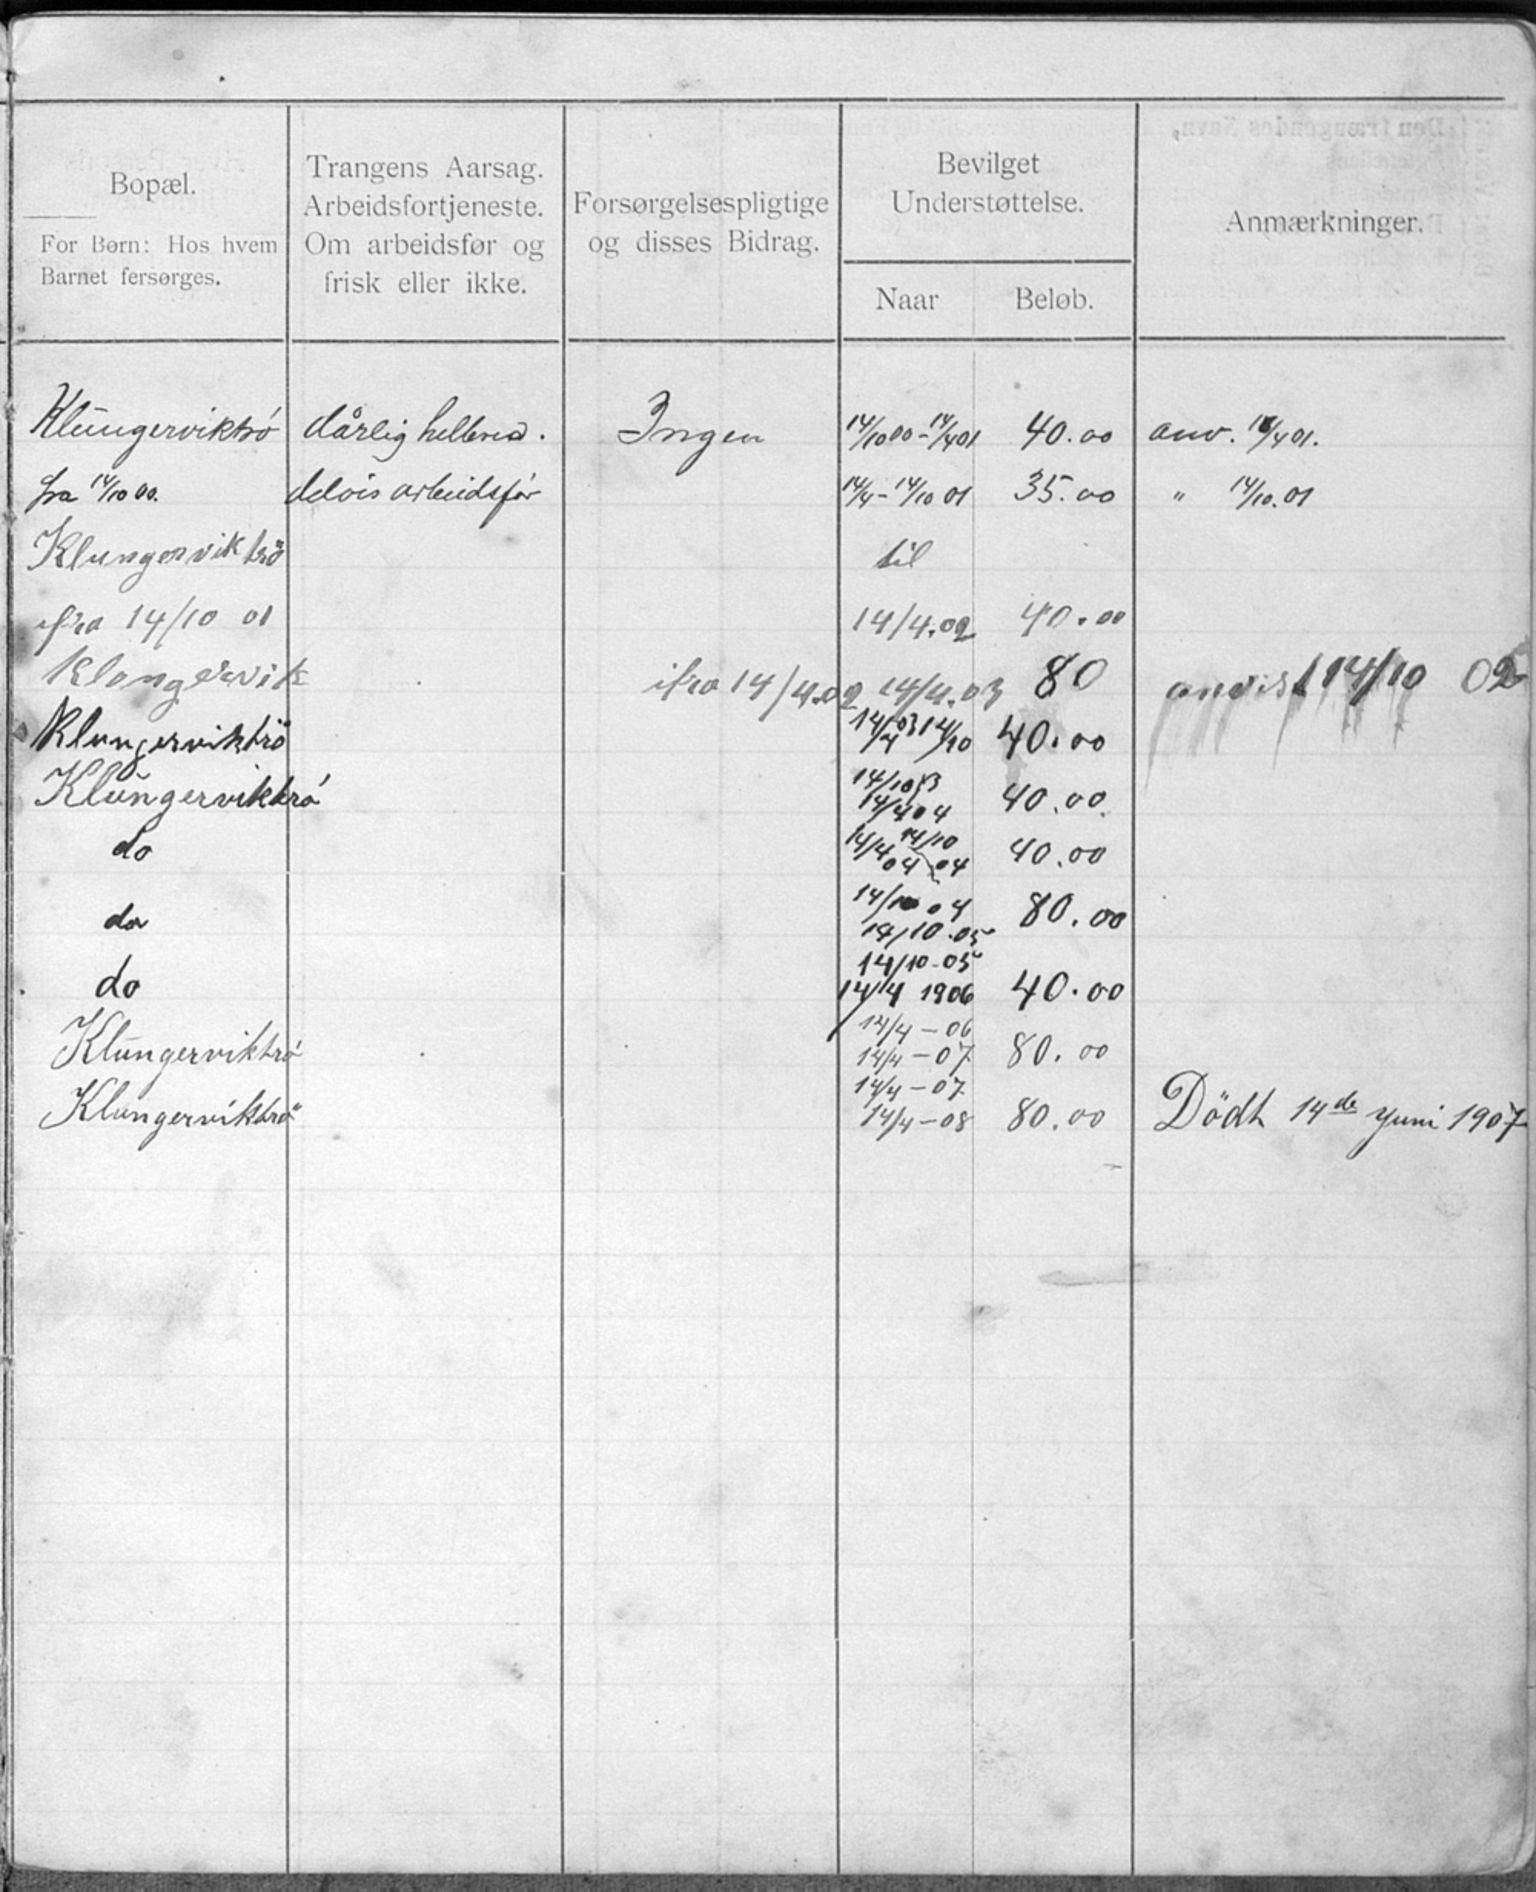 Bopæl.
For Børn: Hos hvem
Barnet fersørges.
Trangens Aarsag.
Arbeidsfortjeneste.
Om arbeidsfør og
frisk eller ikke.
Forsørgelsespligtige
og disses Bidrag.
Bevilget
Understøttelse.
Naar
Beløb.
Anmærkninger.
Klungerviktrö dårlig helbred. Ingen 14/10 00 - 14/4 01 40.00 anv. 14/4 01.
fra 14/10 00. delvis arbeidsfør 14/4 - 14/10 01 35.00 " 14/10.01
Klungerviktrö til
ifra 14/10 01 14/4.02 40.00
Klongervik ifra 14/4.02 14/4.03 80 anvist 14/10 02
Klungerviktrö 14/4 03 14/10 40.00
Klungerviktrö 14/10 03
14/4 04 40.00
do 14/4 04 14/10 04 40.00
do 14/10 04
14/10.05 80.00
do 14/10-05
14/4 1906 40.00
Klungerviktrö 14/4 - 06
14/4 - 07 80.00
Klungerviktrö 14/4 - 07
14/4 - 08 80.00 Dödt 14de Juni 1907